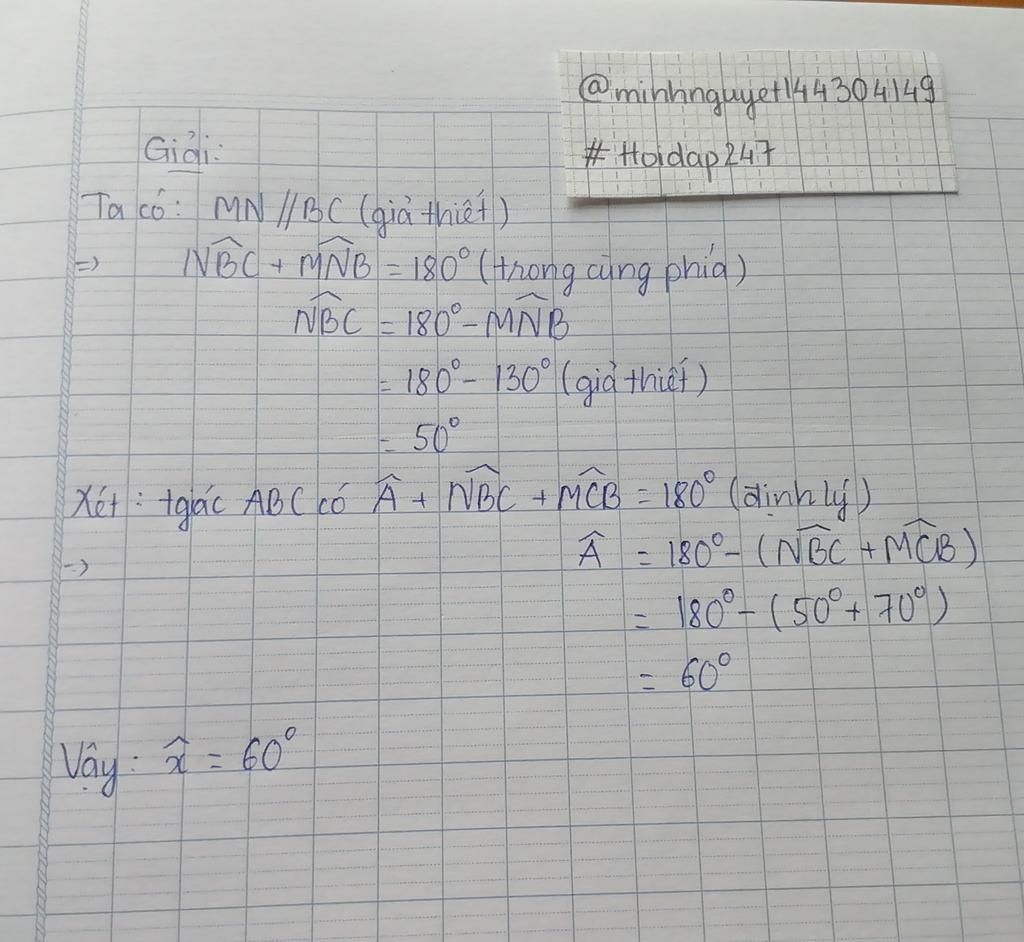 @minhnguyet144304149
#Hoidap247
Giải:
Ta có: MN // BC (giả thiết)
=> N̂BC + MN̂B = 180° (trong cùng phía)
NB̂C = 180° - MN̂B
= 180° - 130° (giả thiết)
= 50°
Xét: tgiác ABC có Â + NB̂C + MĈB = 180° (định lý)
=> Â = 180° - (NB̂C + MĈB)
= 180° - (50° + 70°)
= 60°
Vậy: x̂ = 60°